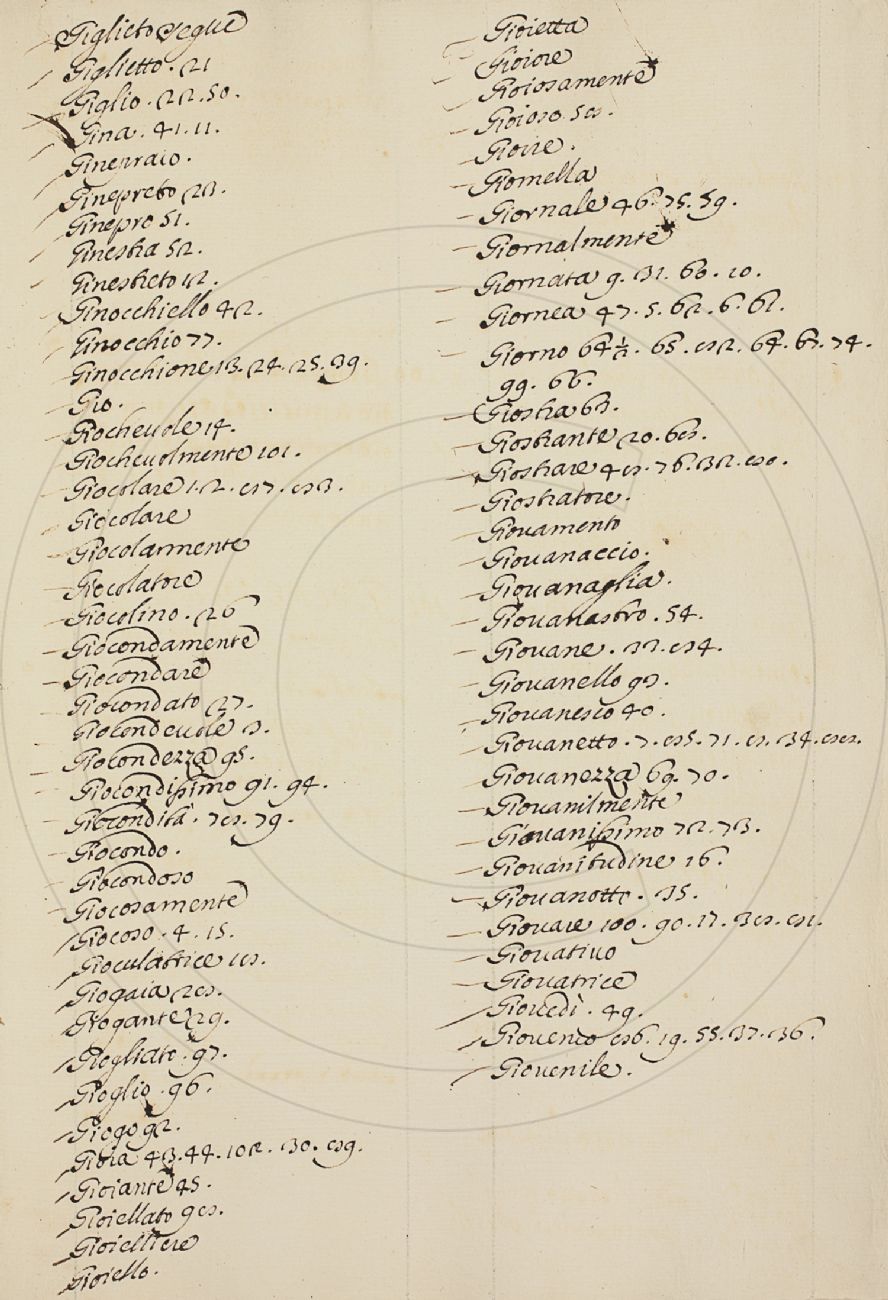 Giglieto segue
Giglietto. 21
Giglio. 22. 50.
Gina. 41. 11.
Ginepraio.
Ginepreto 23.
Ginepro 51.
Ginestra 52.
Ginestreto 12.
Ginocchiello 42.
Ginocchio 77.
Ginocchione 13. 24. 25. 39.
Gio.
Giocheuole 14.
Giocheuolmente 101.
Giocolare 1. 2. 87. 83.
Giocolare
Giocolarmente
Giocolatore
Giocolino. 26
Giocondamente
Giocondare
Giocondato 27.
Giocondeuole 3.
Giocondezza 95.
Giocondissimo 91. 94.
Giocondità. 78. 79.
Giocondo.
Giocondoso
Giocosamente
Giocoso. 4. 15.
Gioculatrice 18.
Giogaia 28.
Giogante 29.
Giogliato. 97.
Gioglio. 96.
Giogo 92.
Gioia 43. 44. 102. 30. 89.
Gioiante 45.
Gioiellato 98.
Gioielliere
Gioiello.
Gioietta
Gioiore
Gioiosamente
Gioioso. 58.
Gioire.
Giomella
Giornale 46. 75. 59.
Giornalmente
Giornata 9. 31. 60. 10.
Giornea 47. 5. 62. 6. 61.
Giorno 64½. 65. 82. 64. 67. 74.
99. 66.
Giostra 63.
Giostrante 20. 68.
Giostrare 48. 76. 32. 80.
Giostratore.
Giouamento
Giouanaccio.
Giouanaglia.
Giouanastro. 54.
Giouane. 33. 84.
Giouanello 93.
Giouanesco 40.
Giouanetto. 7. 85. 71. 8. 34. 88.
Giouanezza 69. 70.
Giouanilmente
Giouanissimo 72. 73.
Giouanitudine 16.
Giouanotto. 35.
Giouare 100. 90. 17. 38. 81.
Giouatiuo
Giouatrice
Giouedì. 49.
Giouenco 86. 19. 55. 37. 36.
Giouenile.